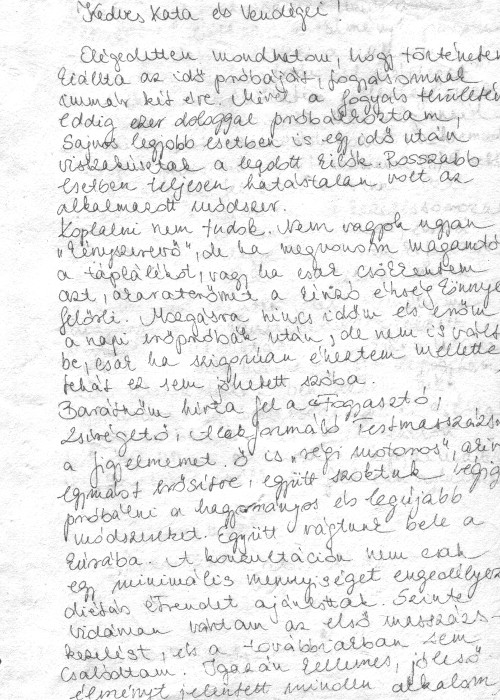 Kedves Kata és Vendégei!
Elégedetten mondhatom, hogy történetem
kiállta az idő próbáját, fogyásomnak
immár két éve. Mivel a fogyás területén
eddig ezer dologgal próbálkoztam,
sajnos legjobb esetben is egy idő után
visszakúsztak a leadott kilók. Rosszabb
esetben teljesen hatástalan volt az
alkalmazott módszer.
Koplalni nem tudok. Nem vagyok ugyan
"kényszerevő", de ha megvonom magamtó
a táplálékot, vagy ha csak csökkentem
azt, akaraterőmet a kínzó éhség könnye
felőrli. Mozgásra nincs időm és erőm
a napi erőpróbák után, de nem is válts
be, csak ha szigorúan éheztem mellette
tehát ez sem jöhetett szóba.
Barátnőm hívta fel a Fogyasztó,
Zsírégető, Alakformáló Testmasszázsr
a figyelmemet. Ő is "régi motoros",
egymást erősítve, együtt szoktuk végig
próbálni a hagyományos és legújabb
módszereket. Együtt vágtunk bele a
kúrába. A konzultáción nem csak
egy minimális mennyiséget engedélyez
diétás étrendet ajánlottak. Szinte
vidáman vártam az első masszázs-
kezelést, és a továbbiakban sem
csalódtam. Igazán kellemes, jóleső
élményt jelentett minden alkalom